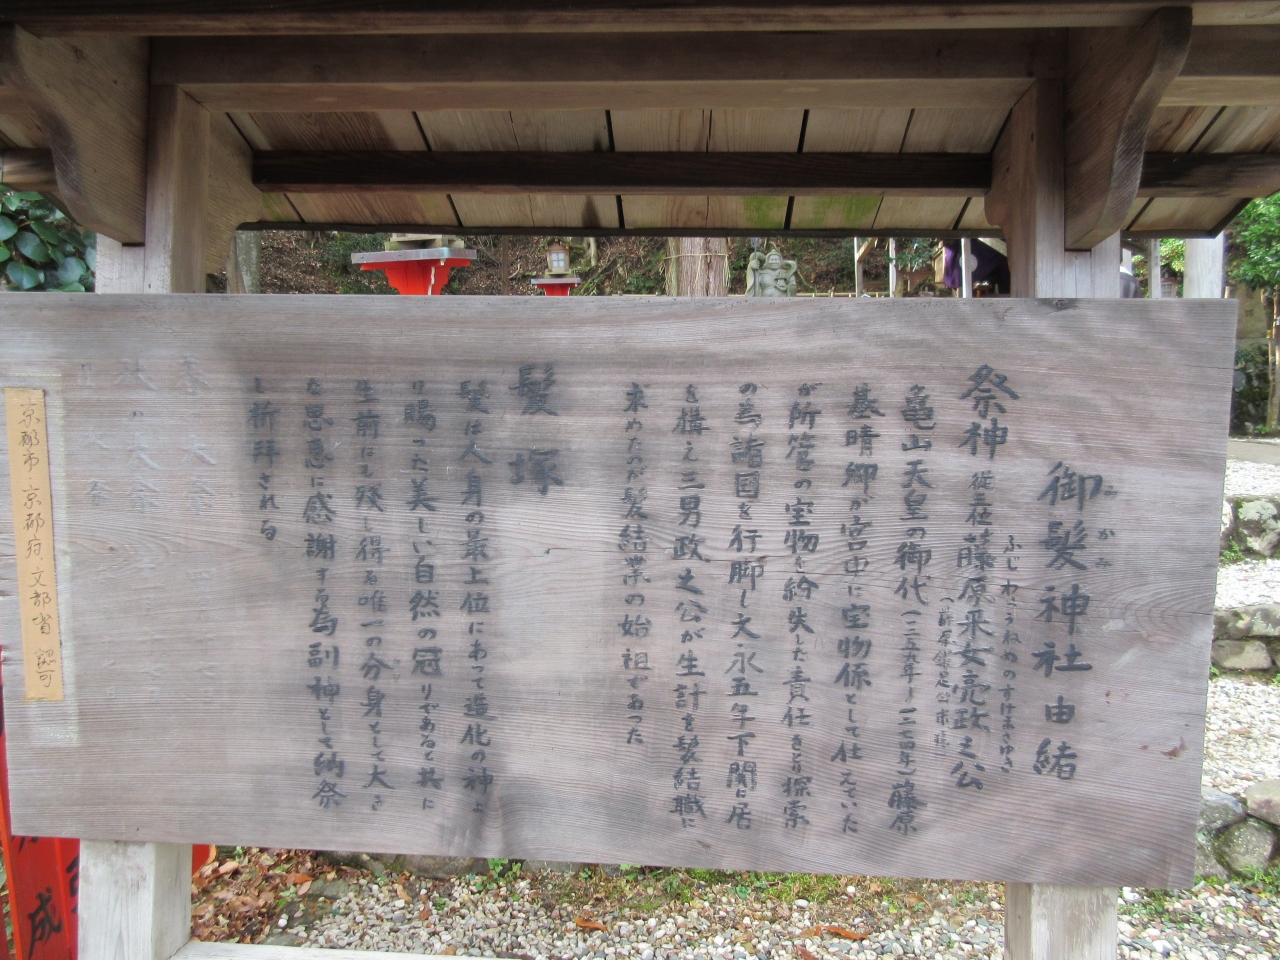 御髪神社由緒
みかみ
祭神 従三位 藤原采女亮政之公
ふじわらうねめのすけまさゆき
(藤原鎌足公末孫)
亀山天皇の御代(一二五九年ー一二七四年)藤原
基晴卿が宮中に宝物係として仕えていた
が所管の宝物を紛失した責任をとり探索
の為諸国を行脚し文永五年下関に居
を構え三男政之公が生計を髪結職に
求めたのが髪結業の始祖であった
髪塚
髪は人身の最上位にあって造化の神よ
り賜った美しい自然の冠りであると共に
生前にも残し得る唯一の分身として大き
な恩恵に感謝する為副神として納祭
し祈拝される
京都市・京都府、文部省 認可
成